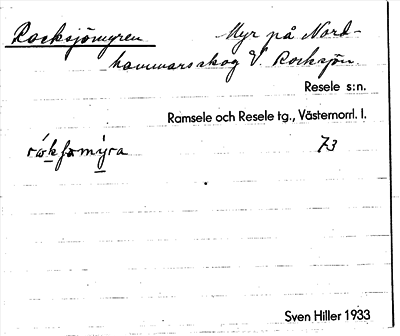 Rocksjömyren Myr på Nord-
hammarsskog V. Rocksjön.
Resele s:n.
Ramsele och Resele tg., Västernorrl. l.
73
Sven Hiller 1933